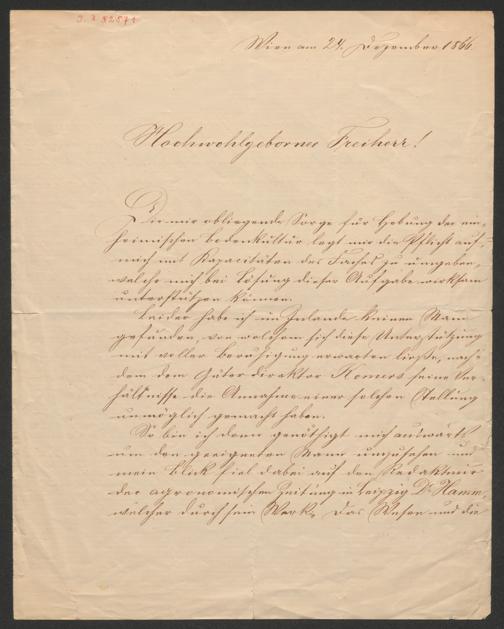 J. N 82571
Wien am 24. Dezember 1866
Hochwohlgeborner Freiherr!
Die mir obliegende Sorge für Hebung der ein-
heimischen Bodenkultur legt mir die Pflicht auf
mich mit Kapacitäten des Faches zu umgeben,
welche mich bei Lösung dieser Aufgabe wirksam
unterstützen können.
Leider habe ich im Inlande keinen Mann
gefunden, von welchem sich diese Unterstützung
mit voller Beruhigung erwarten ließe, nach-
dem dem Güterdirektor Komers seine Ver-
hältnisse die Annahme einer solchen Stellung
unmöglich gemacht haben.
So bin ich denn genöthigt mich auswärts
um den geeigneten Mann umzusehen und
mein Blick fiel dabei auf den Redakteur
der agronomischen Zeitung in Leipzig Dr Hamm,
welcher durch sein Werk: Das Wesen und die